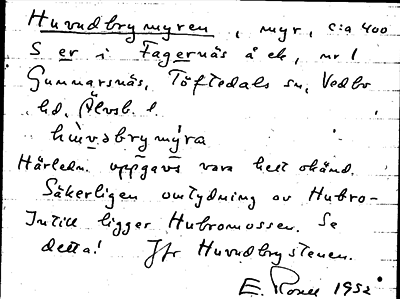 Huvudbrymyren, myr, c:a 400
S er i Fagernäs å ek, nr 1
Gunnarsnäs, Töftedals sn, Vedbo
hd, Älvsb. l.
huvəbrymýra
Härledn. uppgavs vara helt okänd.
Säkerligen omtydning av Hubro-
Intill ligger Hubromossen. Se
detta! Jfr Huvudbrystenen.
E. 1952